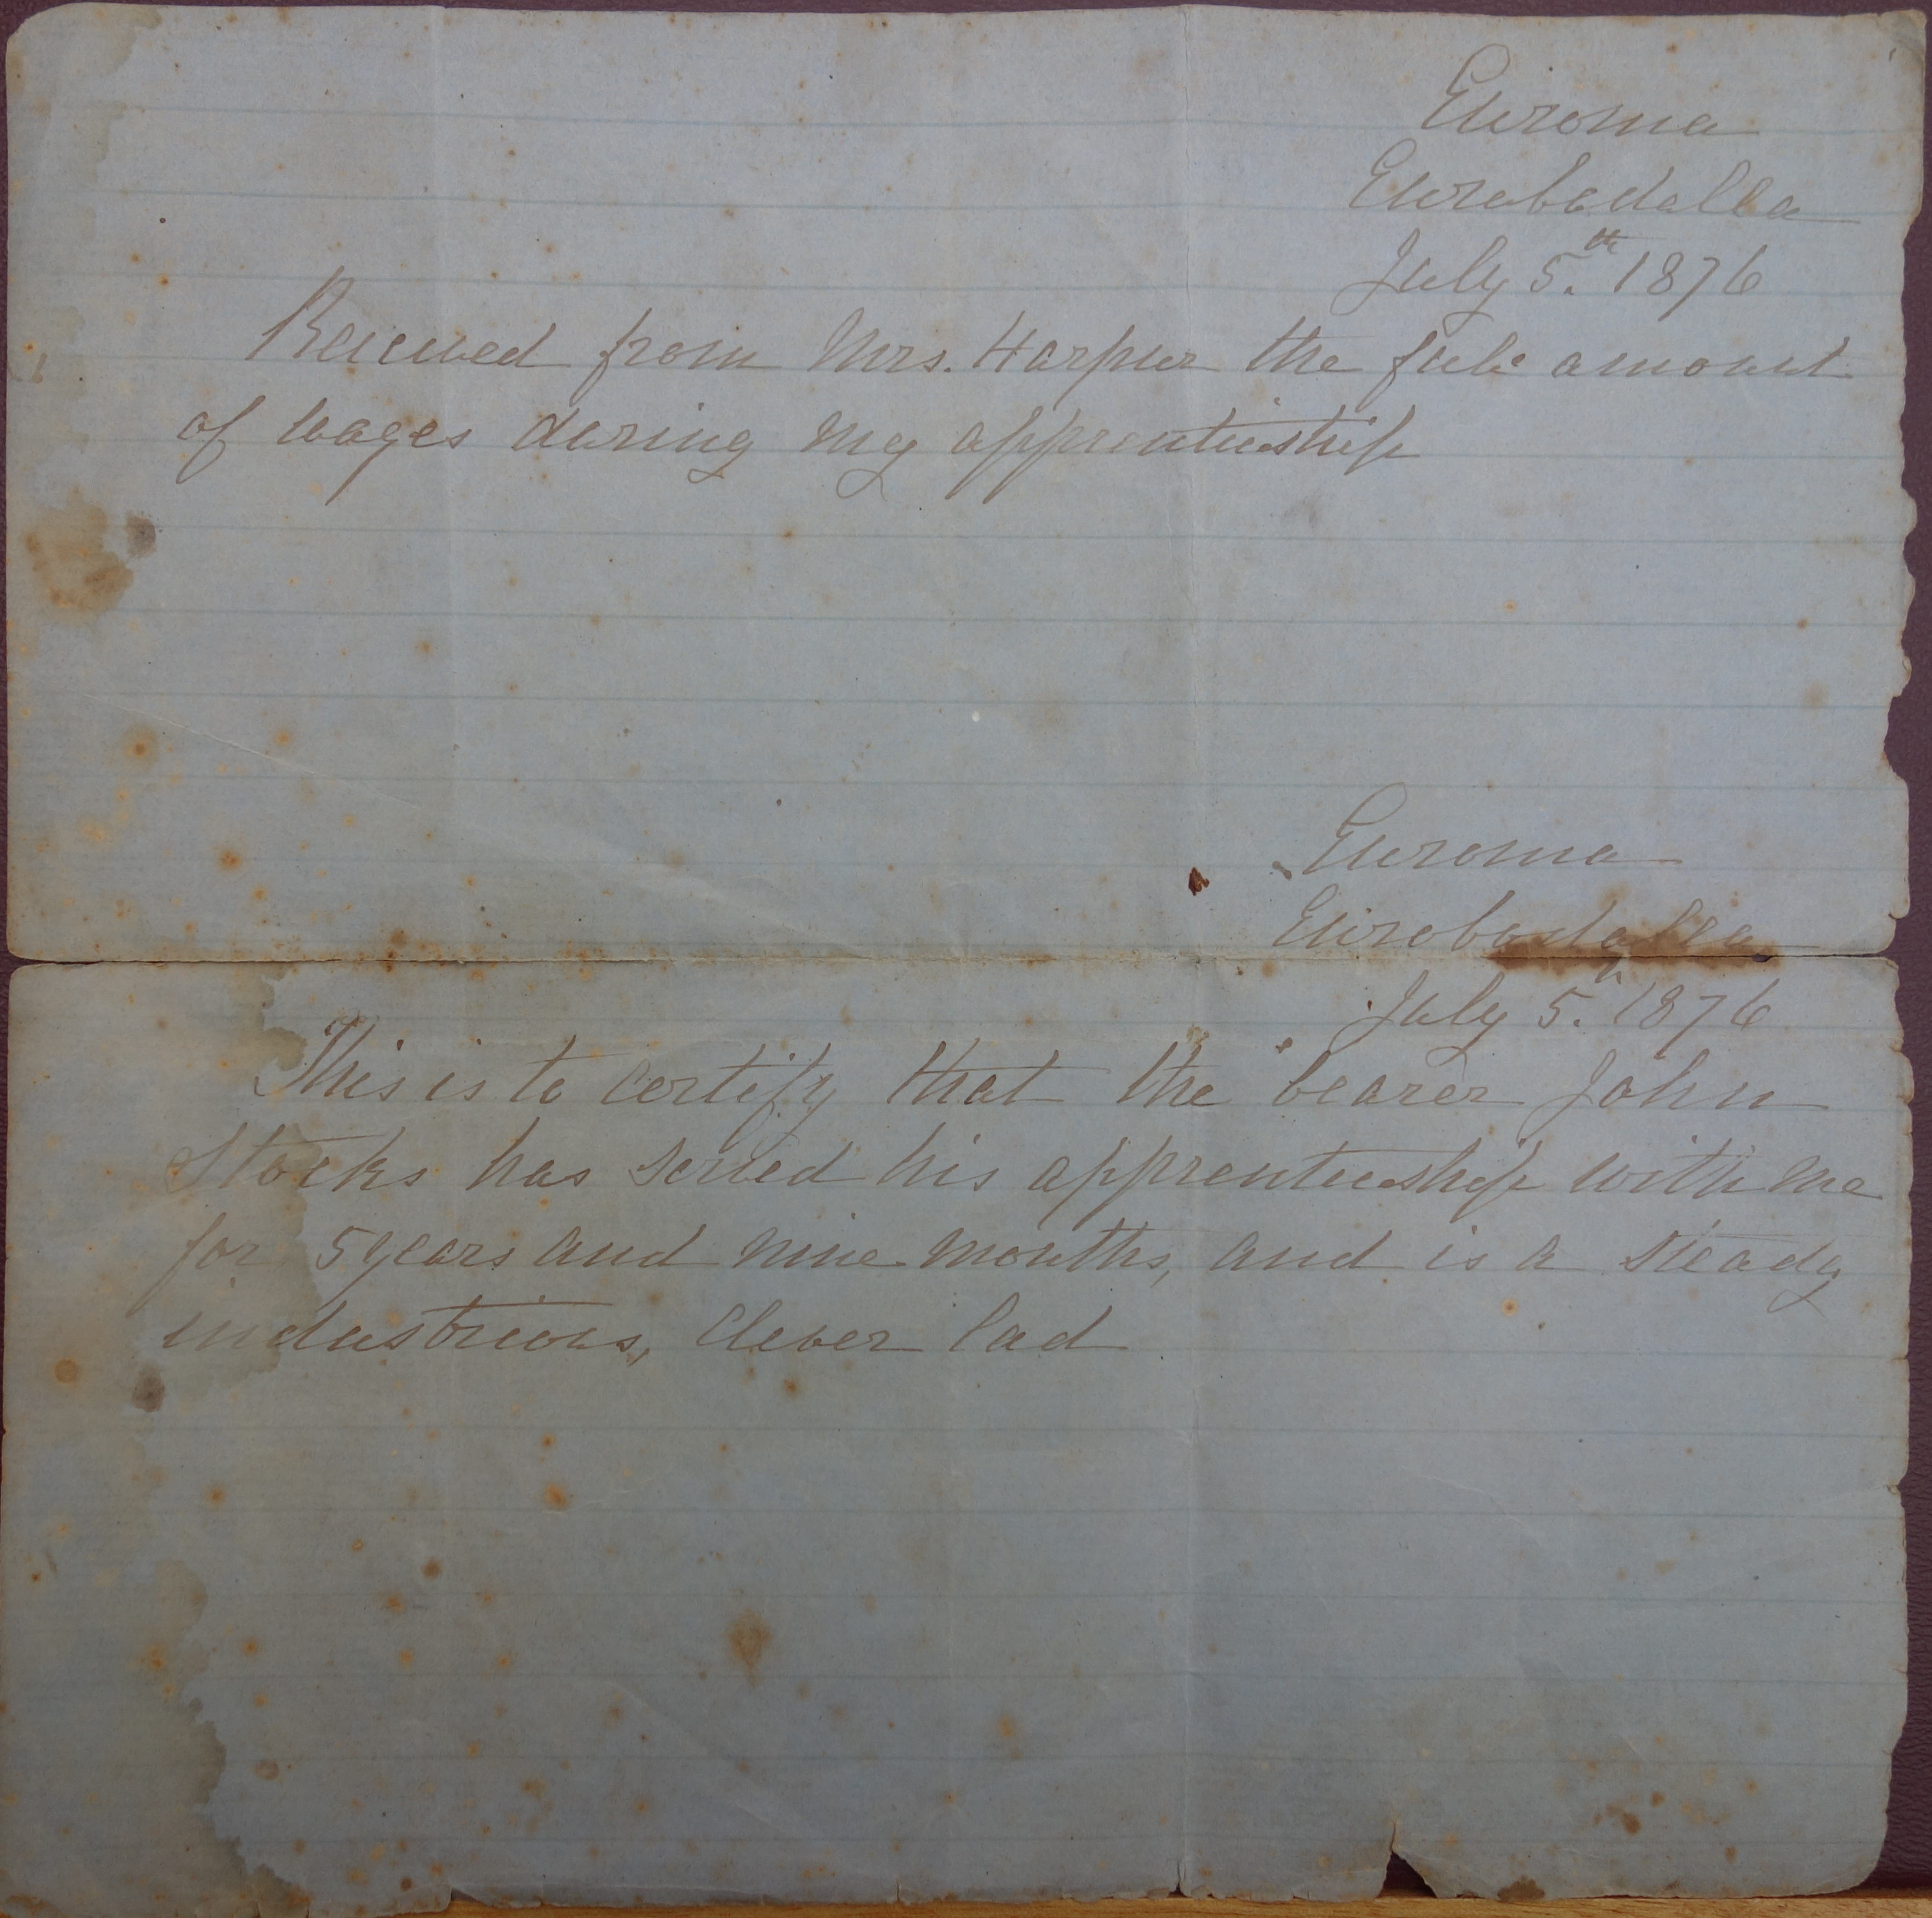 Euroma
Eurobodalla
July 5.th 1876
Received from Mrs. Harpur the full amount
of wages during my apprenticeship
Euroma
Eurobodalla
July 5.th 1876
This is to certify that the bearer John
Stocks has served his apprenticeship with me
for 5 years and nine months, and is a steady
industrious, clever lad